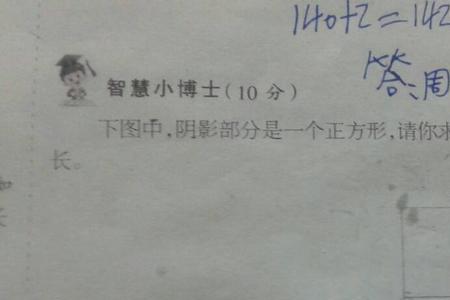 140+2=142
答:周
智慧小博士(10分)
下图中,阴影部分是一个正方形,请你求
长。